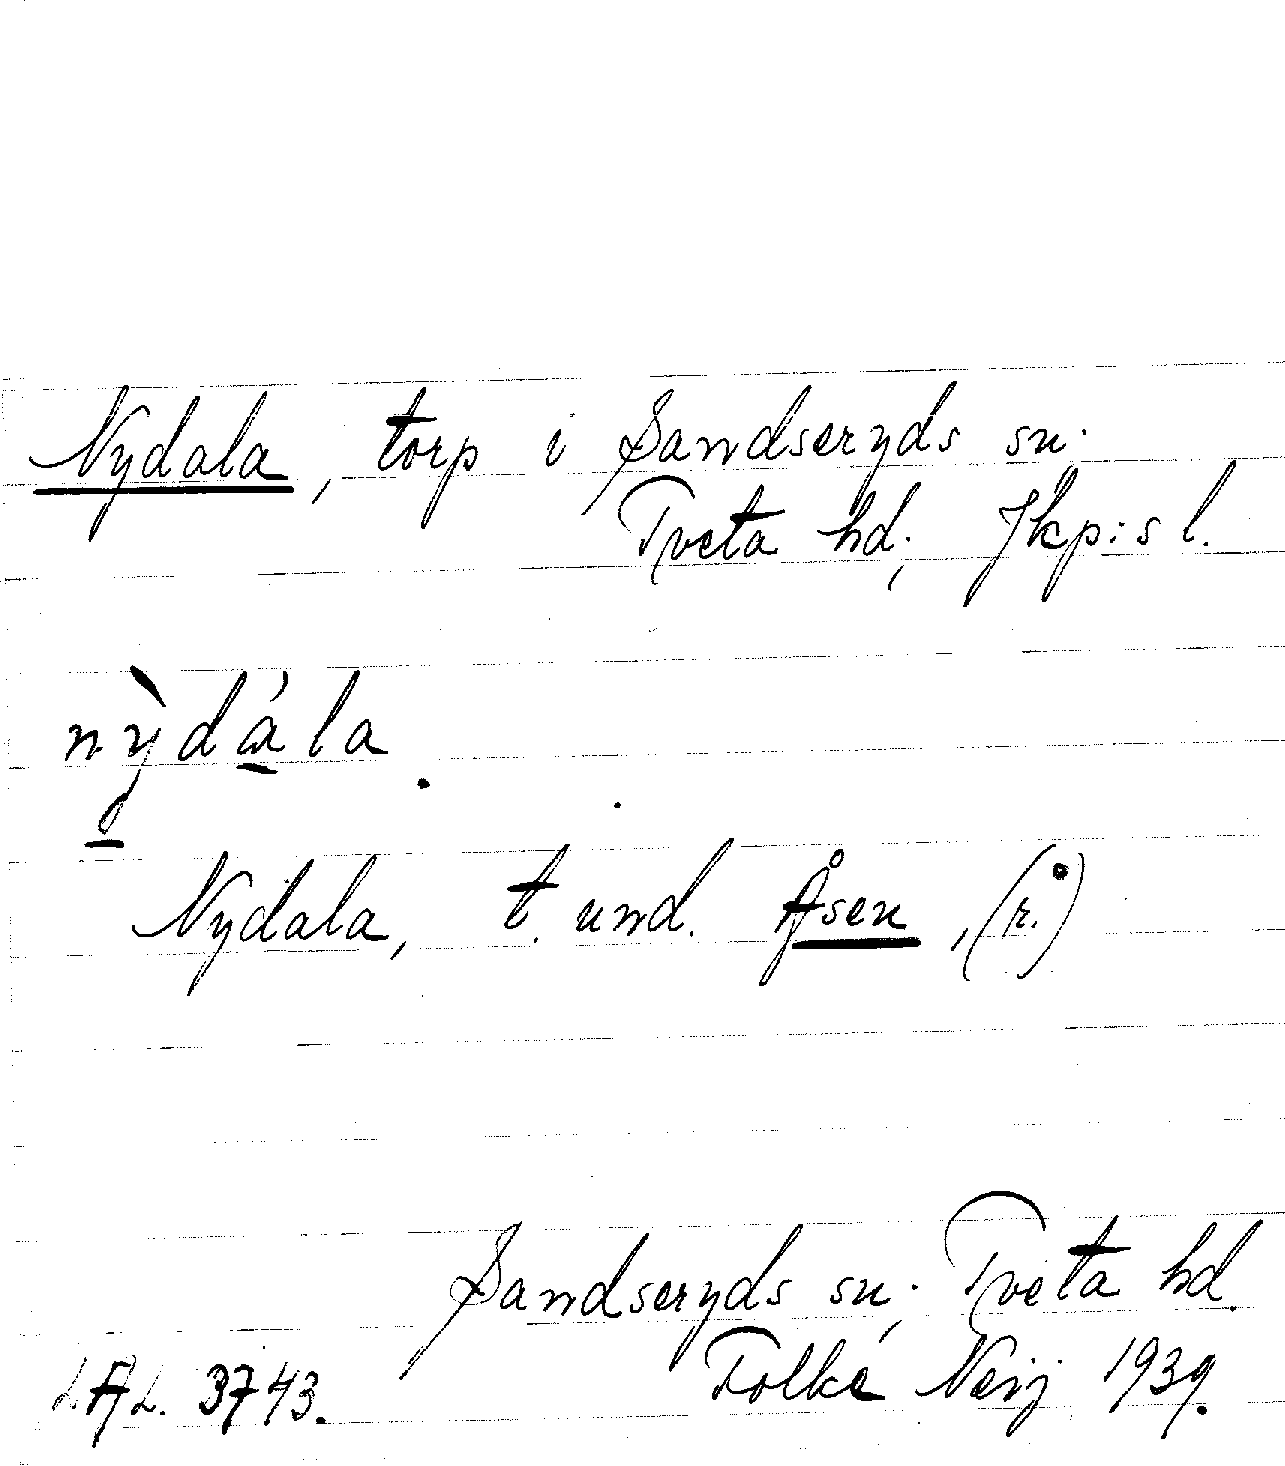 Nydala, torp i Sandseryds sn.
Tveta hd., Jkp:s l.
nỳdála.
Nydala, t. und. Åsen, (r.)
Sandseryds sn., Tveta hd.
L.A.L. 3743. Folke 1939.